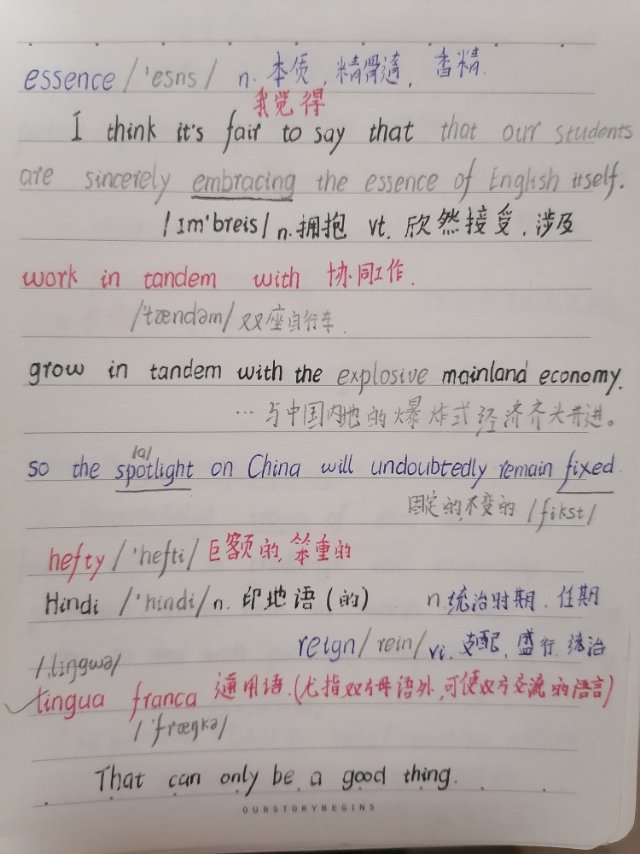 essence /'esns/ n. 本质, 精髓, 香精.
我觉得
I think it's fair to say that that our students
are sincerely embracing the essence of English itself.
/ɪm'breis/ n. 拥抱 vt. 欣然接受, 涉及
work in tandem with 协同工作.
/'tændəm/ 双座自行车.
grow in tandem with the explosive mainland economy.
… 与中国内地的爆炸式经济齐头并进。
/ɒ/
so the spotlight on China will undoubtedly remain fixed.
固定的,不变的 /fikst/
hefty /'hefti/ 巨额的,笨重的
Hindi /'hindi/ n. 印地语(的) n.统治时期. 任期
reign /rein/ vi. 支配, 盛行. 统治
/ˌliŋgwə/
lingua franca 通用语.(尤指双母语外,可使双方交流的语言)
/'fræŋkə/
That can only be a good thing.
OURSTORYBEGINS